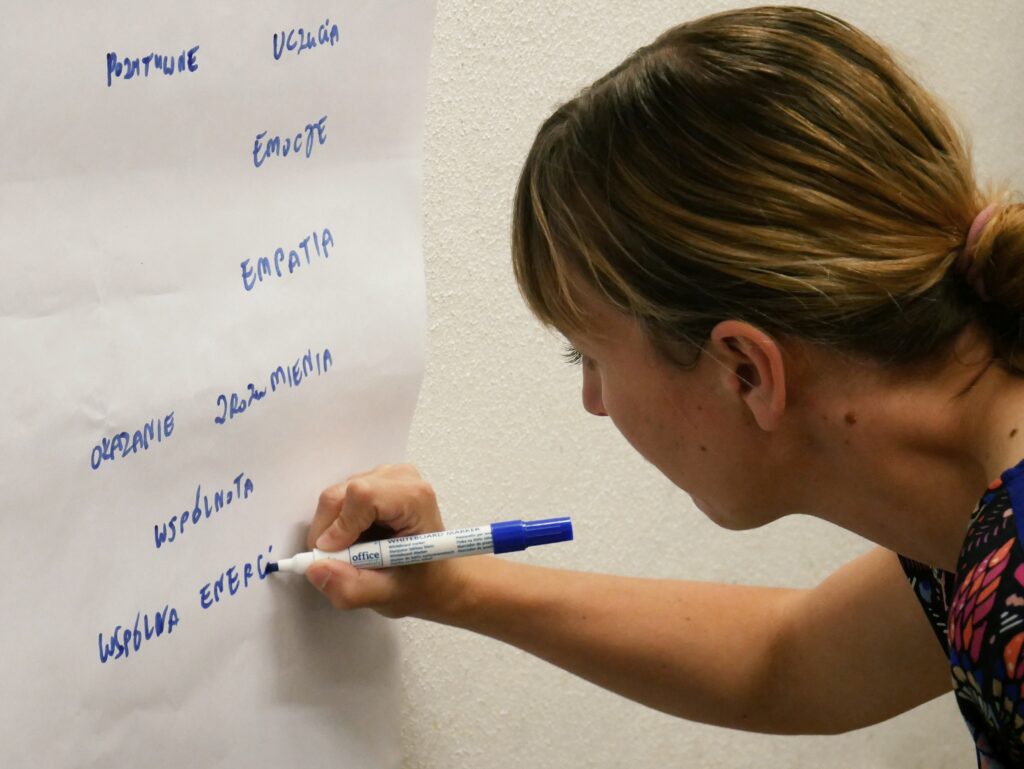 POZYTYWNE UCZUCIA
EMOCJE
EMPATIA
OKAZANIE ZROZUMIENIA
WSPÓLNOTA
WSPÓLNA ENERG
office
WHITEBOARD MARKER
Whiteboard marker